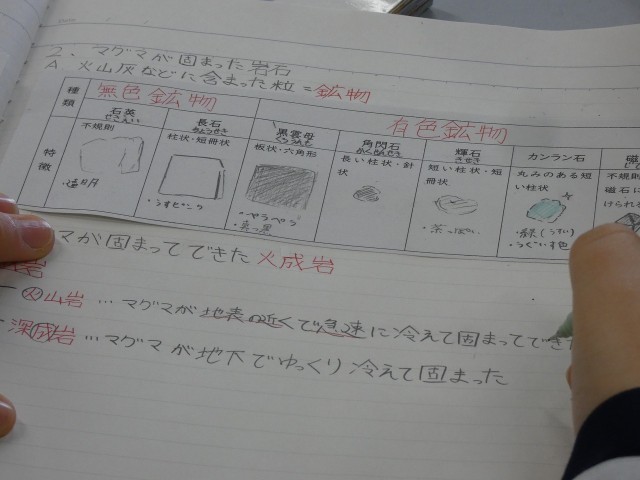 2. マグマが固まった岩石
A 火山灰などに含まった粒 = 鉱物
種類
無色鉱物
有色鉱物
石英
せきえい
長石
ちょうせき
黒雲母
くろうんも
角閃石
かくせんせき
輝石
きせき
カンラン石
磁
特徴
不規則
柱状・短冊状
板状・六角形
長い柱状・針状
短い柱状・短冊状
丸みのある短い柱状
不規則
磁石に
けられる
・透明
・うすピンク
・ペラペラ
・真っ黒
・茶っぽい
・緑(うすい)
・うぐいす色
マが固まってできた火成岩
岩
火山岩…マグマが地表の近くで急速に冷えて固まってでき
深成岩…マグマが地下でゆっくり冷えて固まった